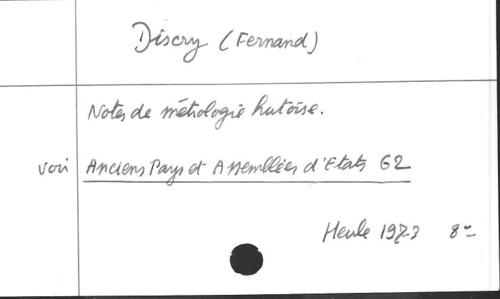 Discry (Fernand)
Notes de métrologie hutoise.
voir Anciens Pays et Assemblées d'Etats 62
Heule 1973 8°